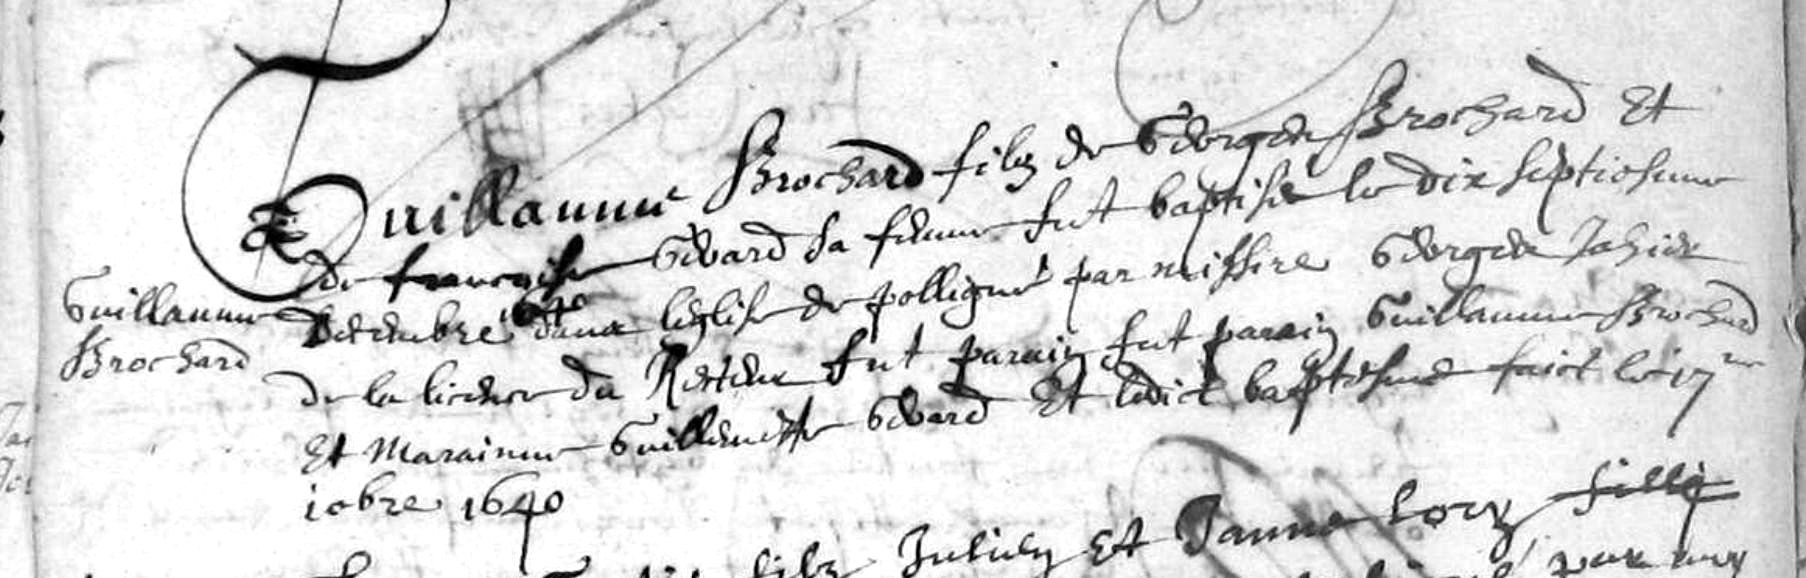 Guillaume Brochard filz de George Brochard Et
de francoise Gevard sa femme fut baptisé le dix septiesme
Decembre 1640 dans leglise de polligné par missire George Jahier
Guillaume
Brochard
de la licence du Recteur fut parain fut parain Guillaume Brochard
Et Maraine Guillemette Gevard Et ledict baptesme faict le 17me
iobre 1640
filz Julien Et Janne Lorz